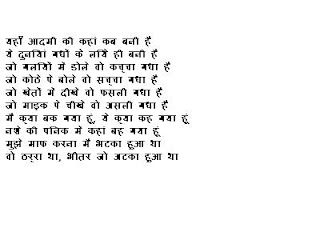 यहाँ आदमी की कहां कब बनी है
ये दुनियां गधों के लिये ही बनी है
जो गलियों में डोले वो कच्चा गधा है
जो कोठे पे बोले वो सच्चा गधा है
जो खेतों में दीखे वो फसली गधा है
जो माइक पे चीखे वो असली गधा है
मैं क्या बक गया हूं, ये क्या कह गया हूं
नशे की पिनक में कहां बह गया हूं
मुझे माफ करना मैं भटका हुआ था
वो ठर्रा था, भीतर जो अटका हुआ था